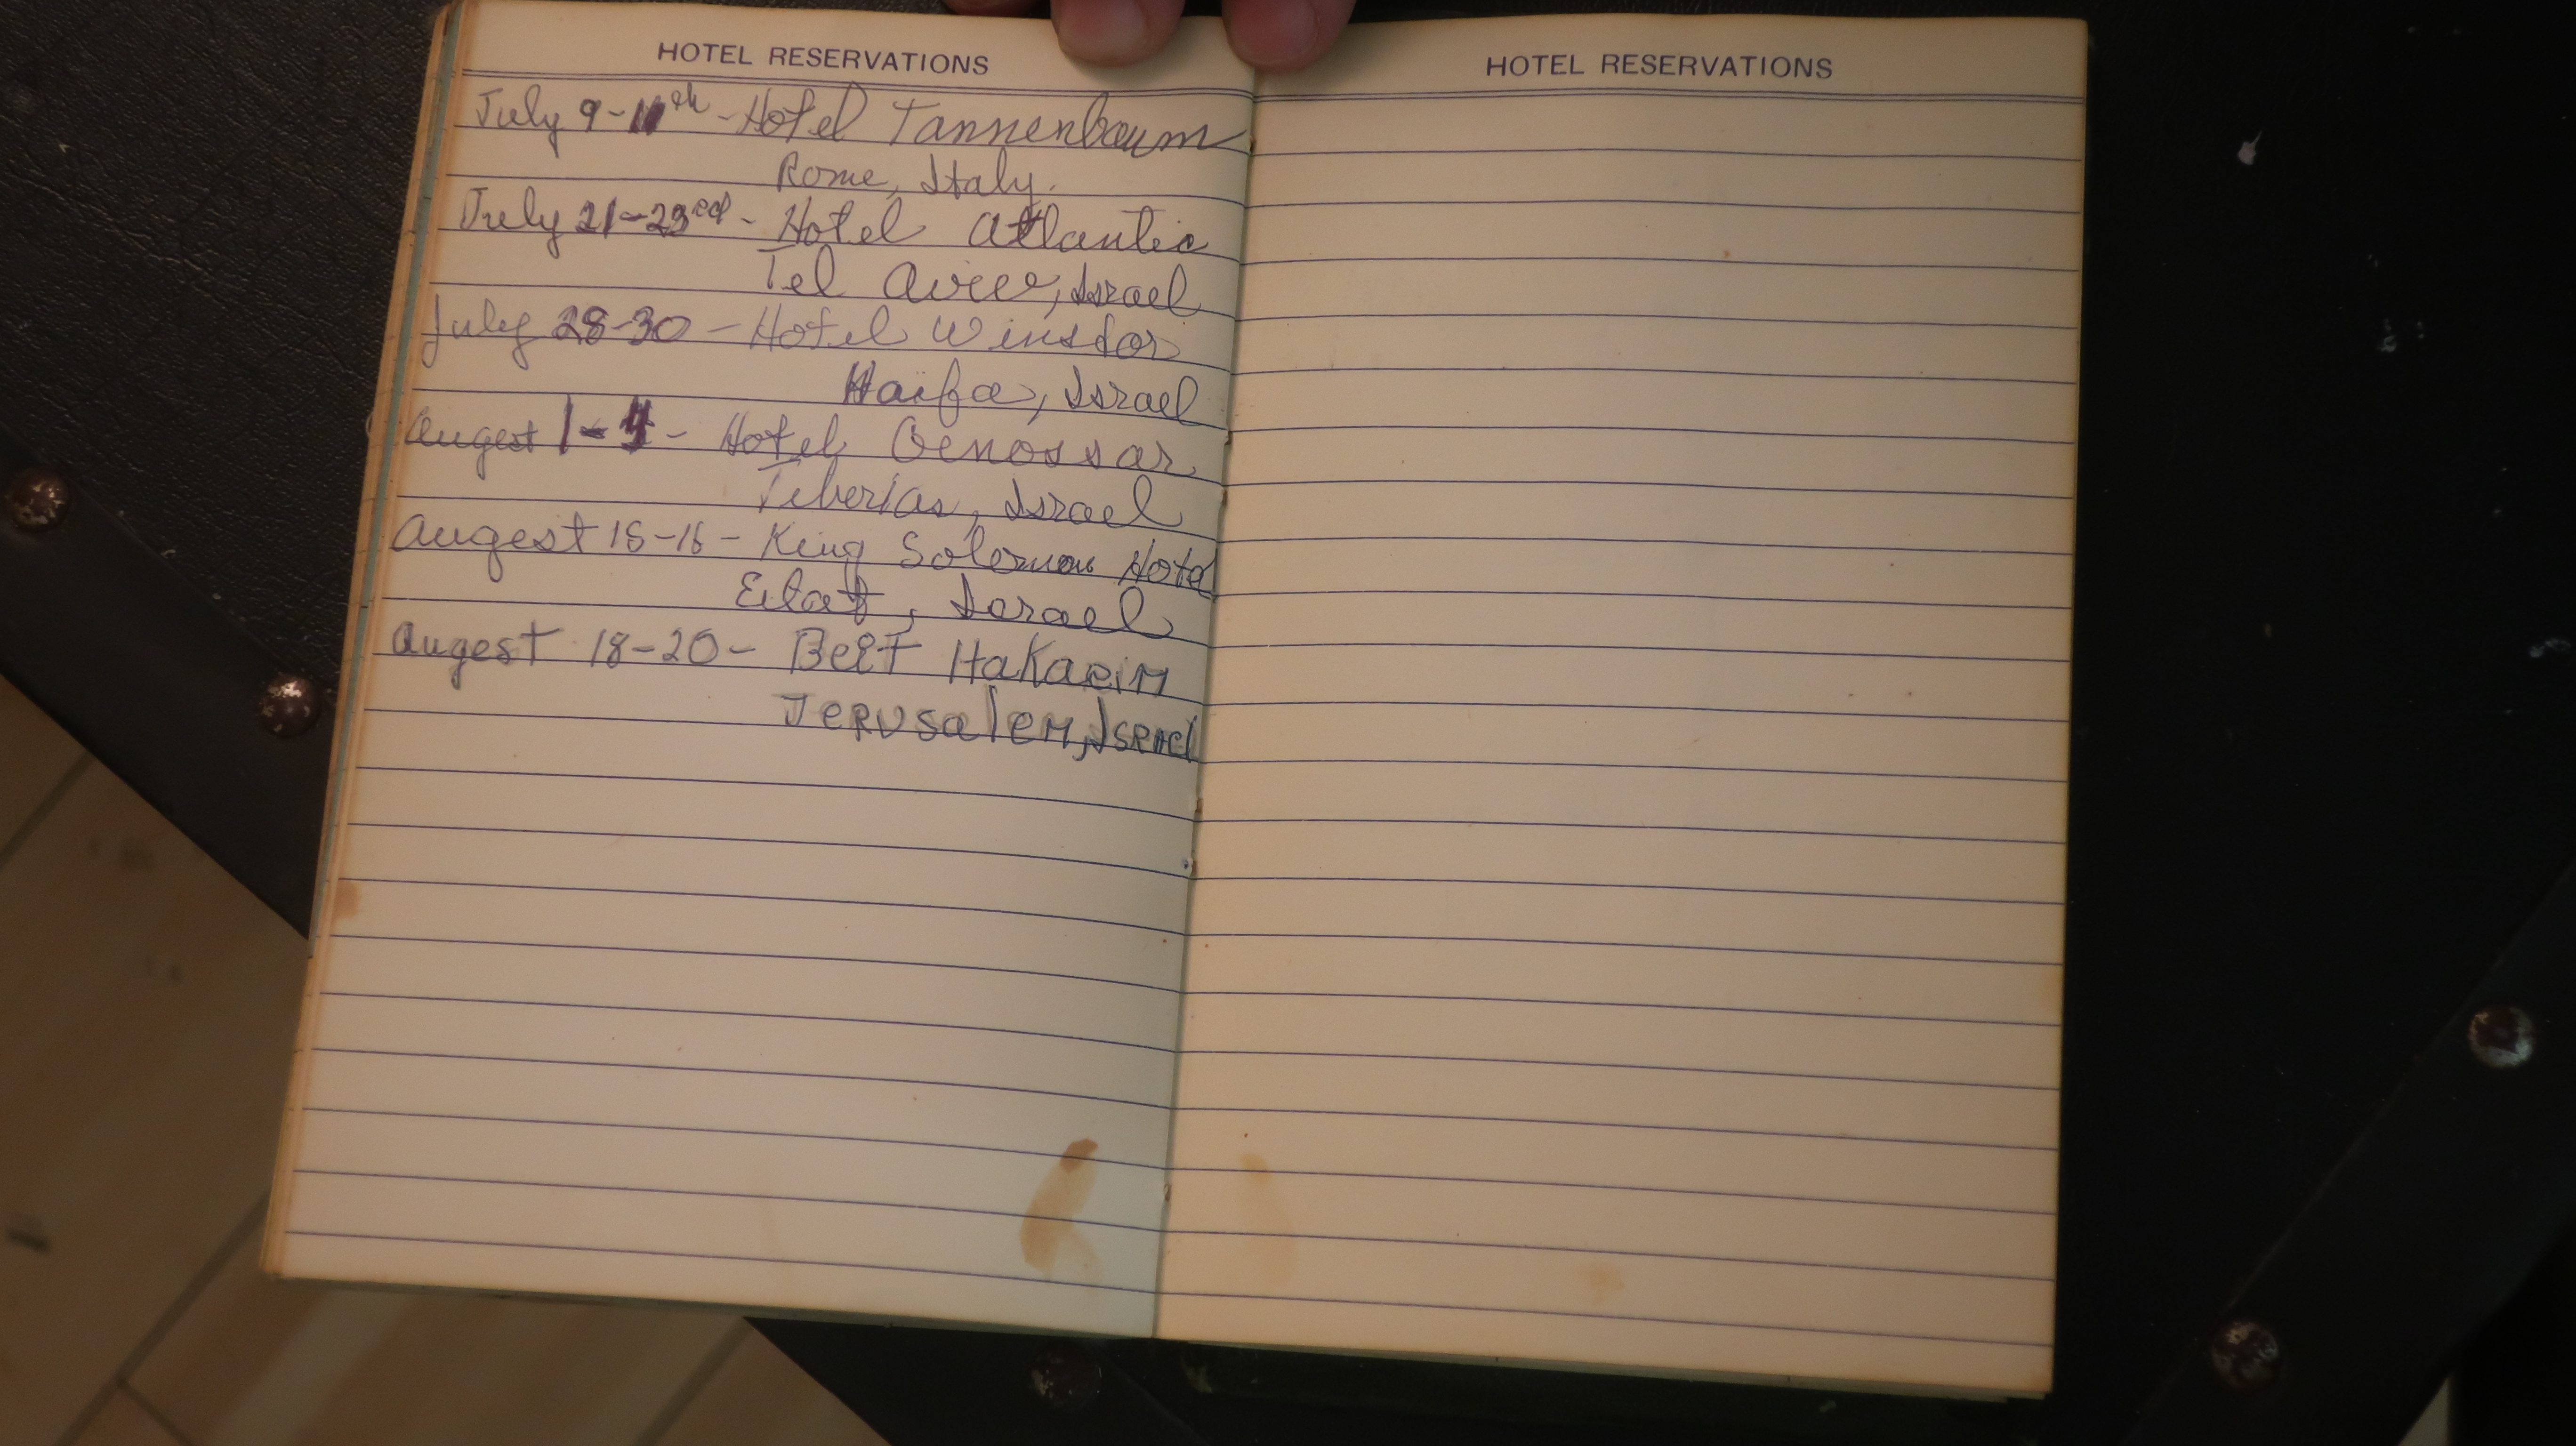 HOTEL RESERVATIONS
July 9-11th - Hotel Tannenbaum
Rome, Italy.
July 21-23rd - Hotel Atlantic
Tel Aviv, Israel
July 28-30 - Hotel Winsdor
Haifa, Israel
Augest 1-4 - Hotel Genossar
Teberias, Israel
Augest 15-16 - King Solomon Hotel
Eilat, Israel
Augest 18-20 - Beit HaKarim
Jerusalem, Israel
HOTEL RESERVATIONS